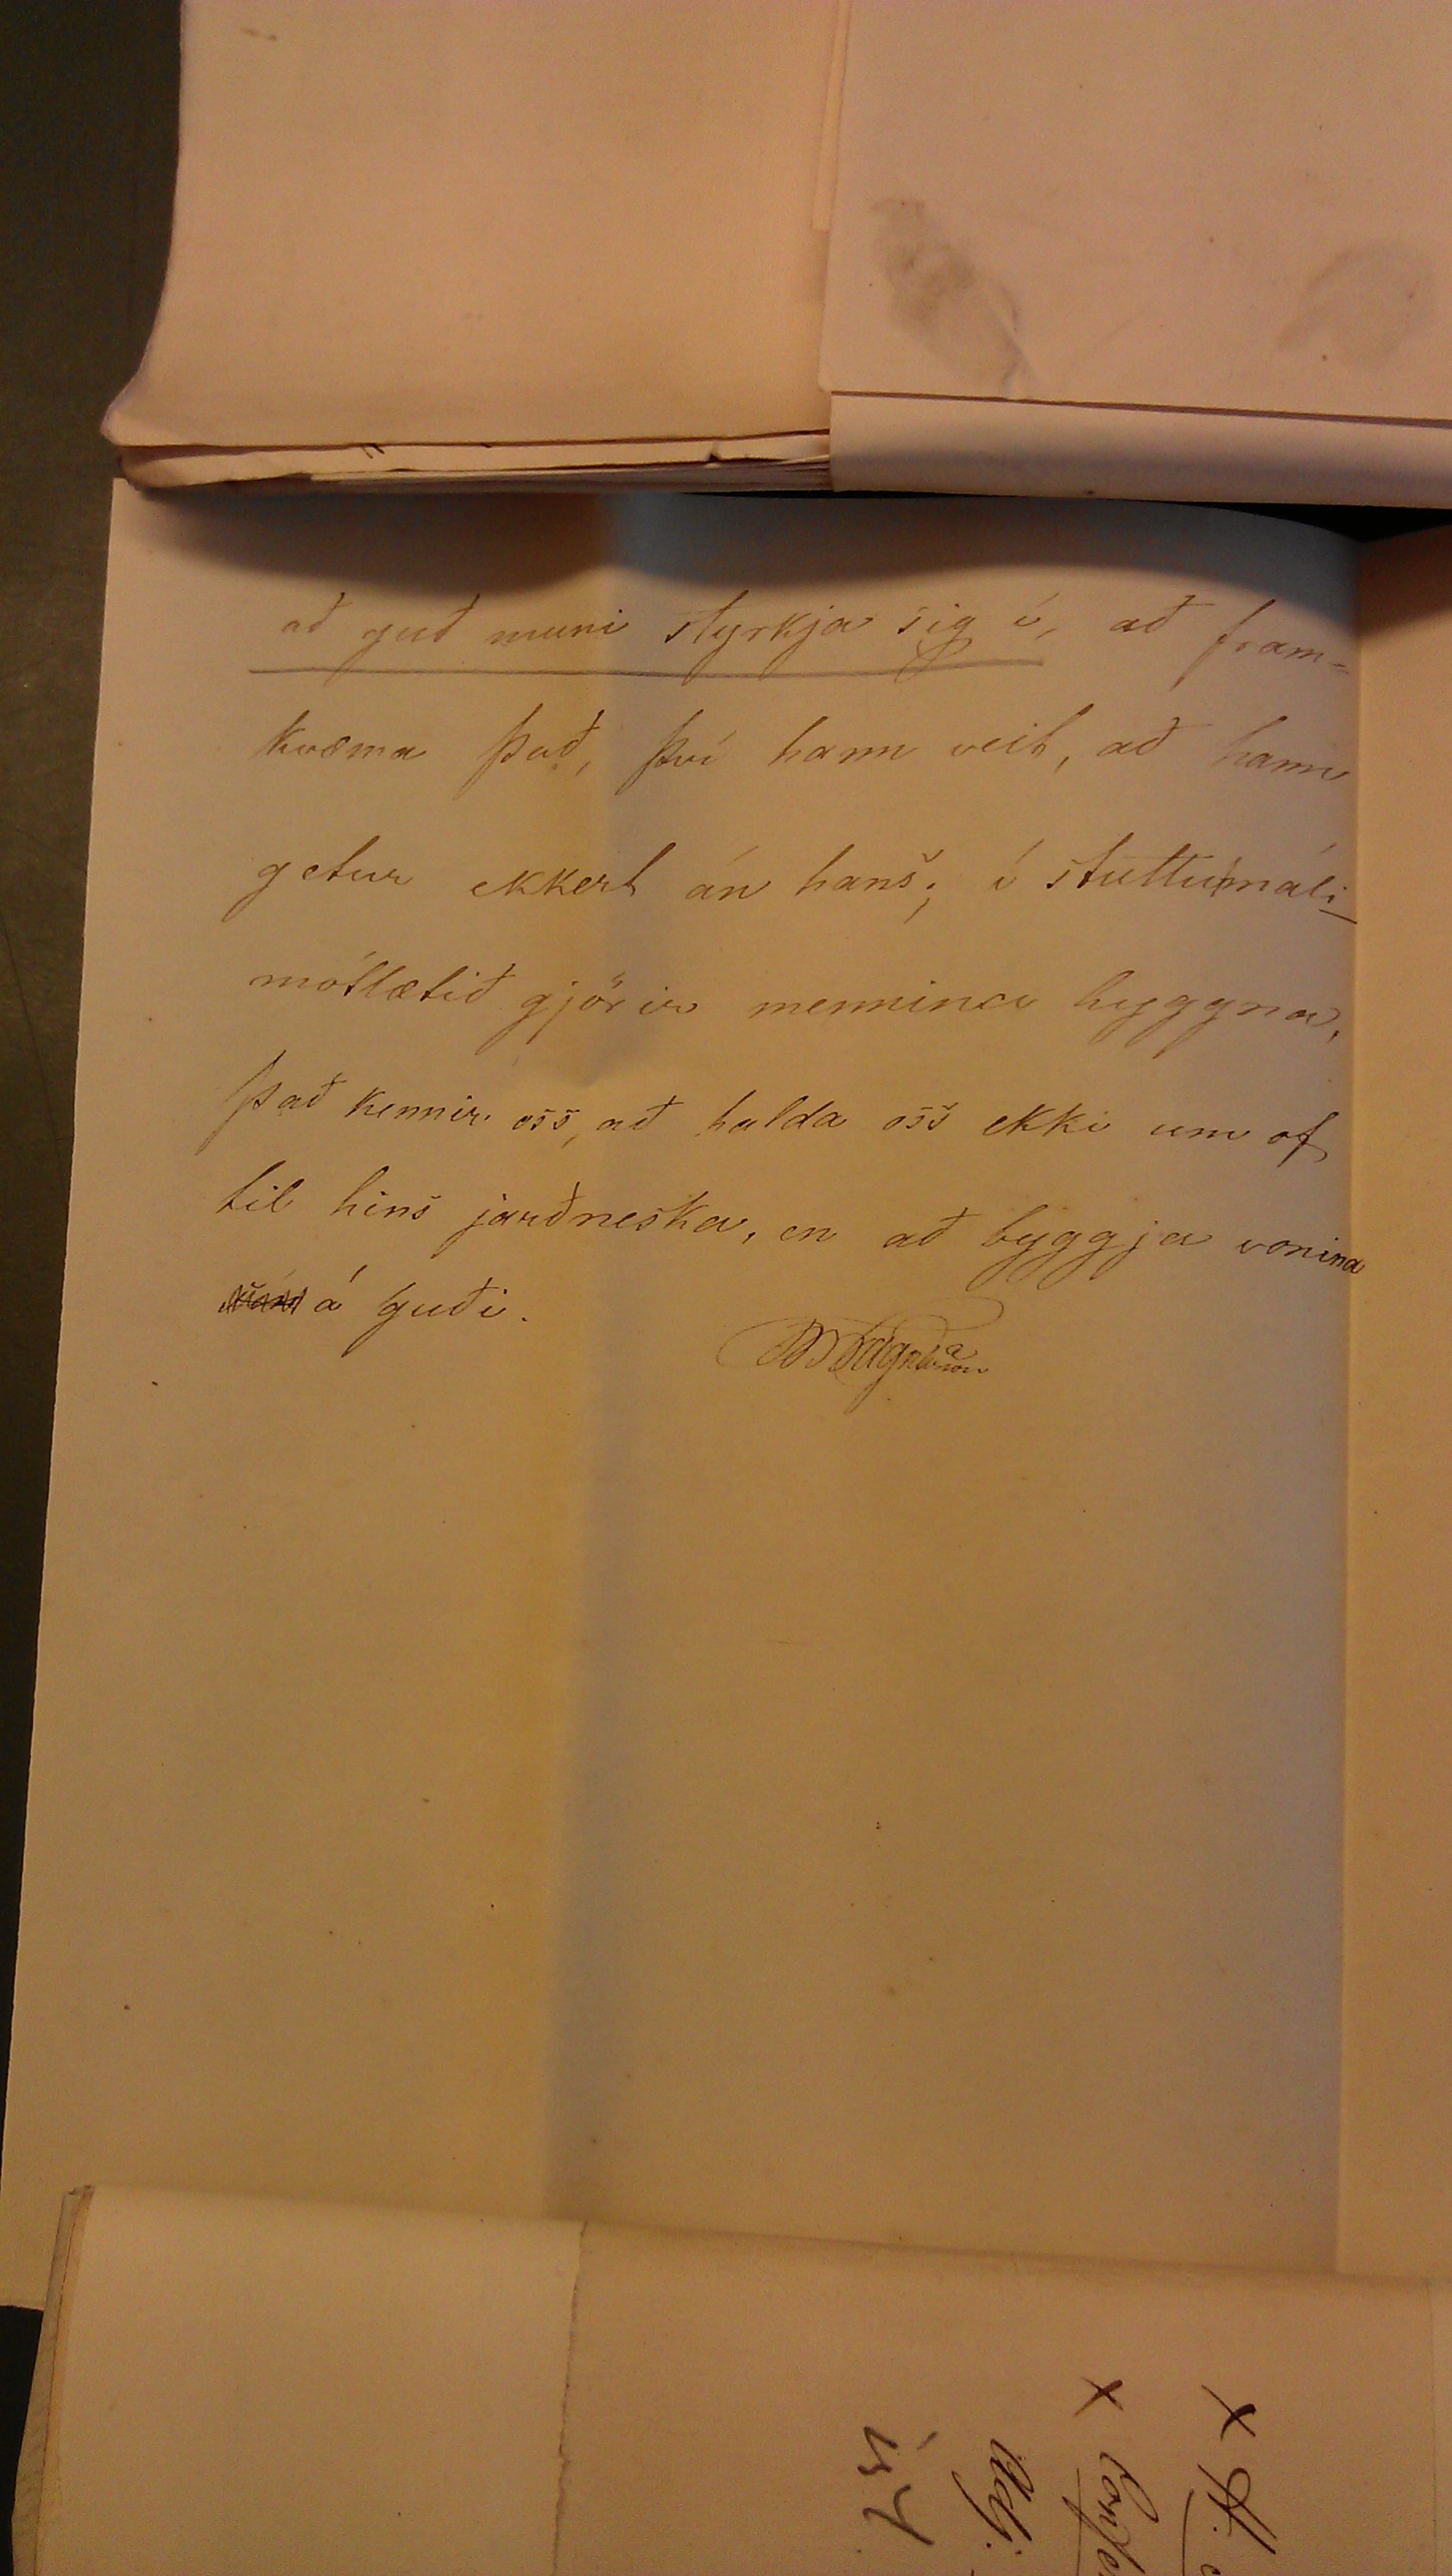 að guð muni styrkja sig í, að fram=
kvæma það, því hann veit, að hann
getur ekkert án hans; í stuttu máli
mótlætið gjörir mennina hyggna,
það kennir oss, að halda oss ekki um of
til hins jarðneska, en að byggja vonina
á guði.
Magnússon
x H.
x
Adj.